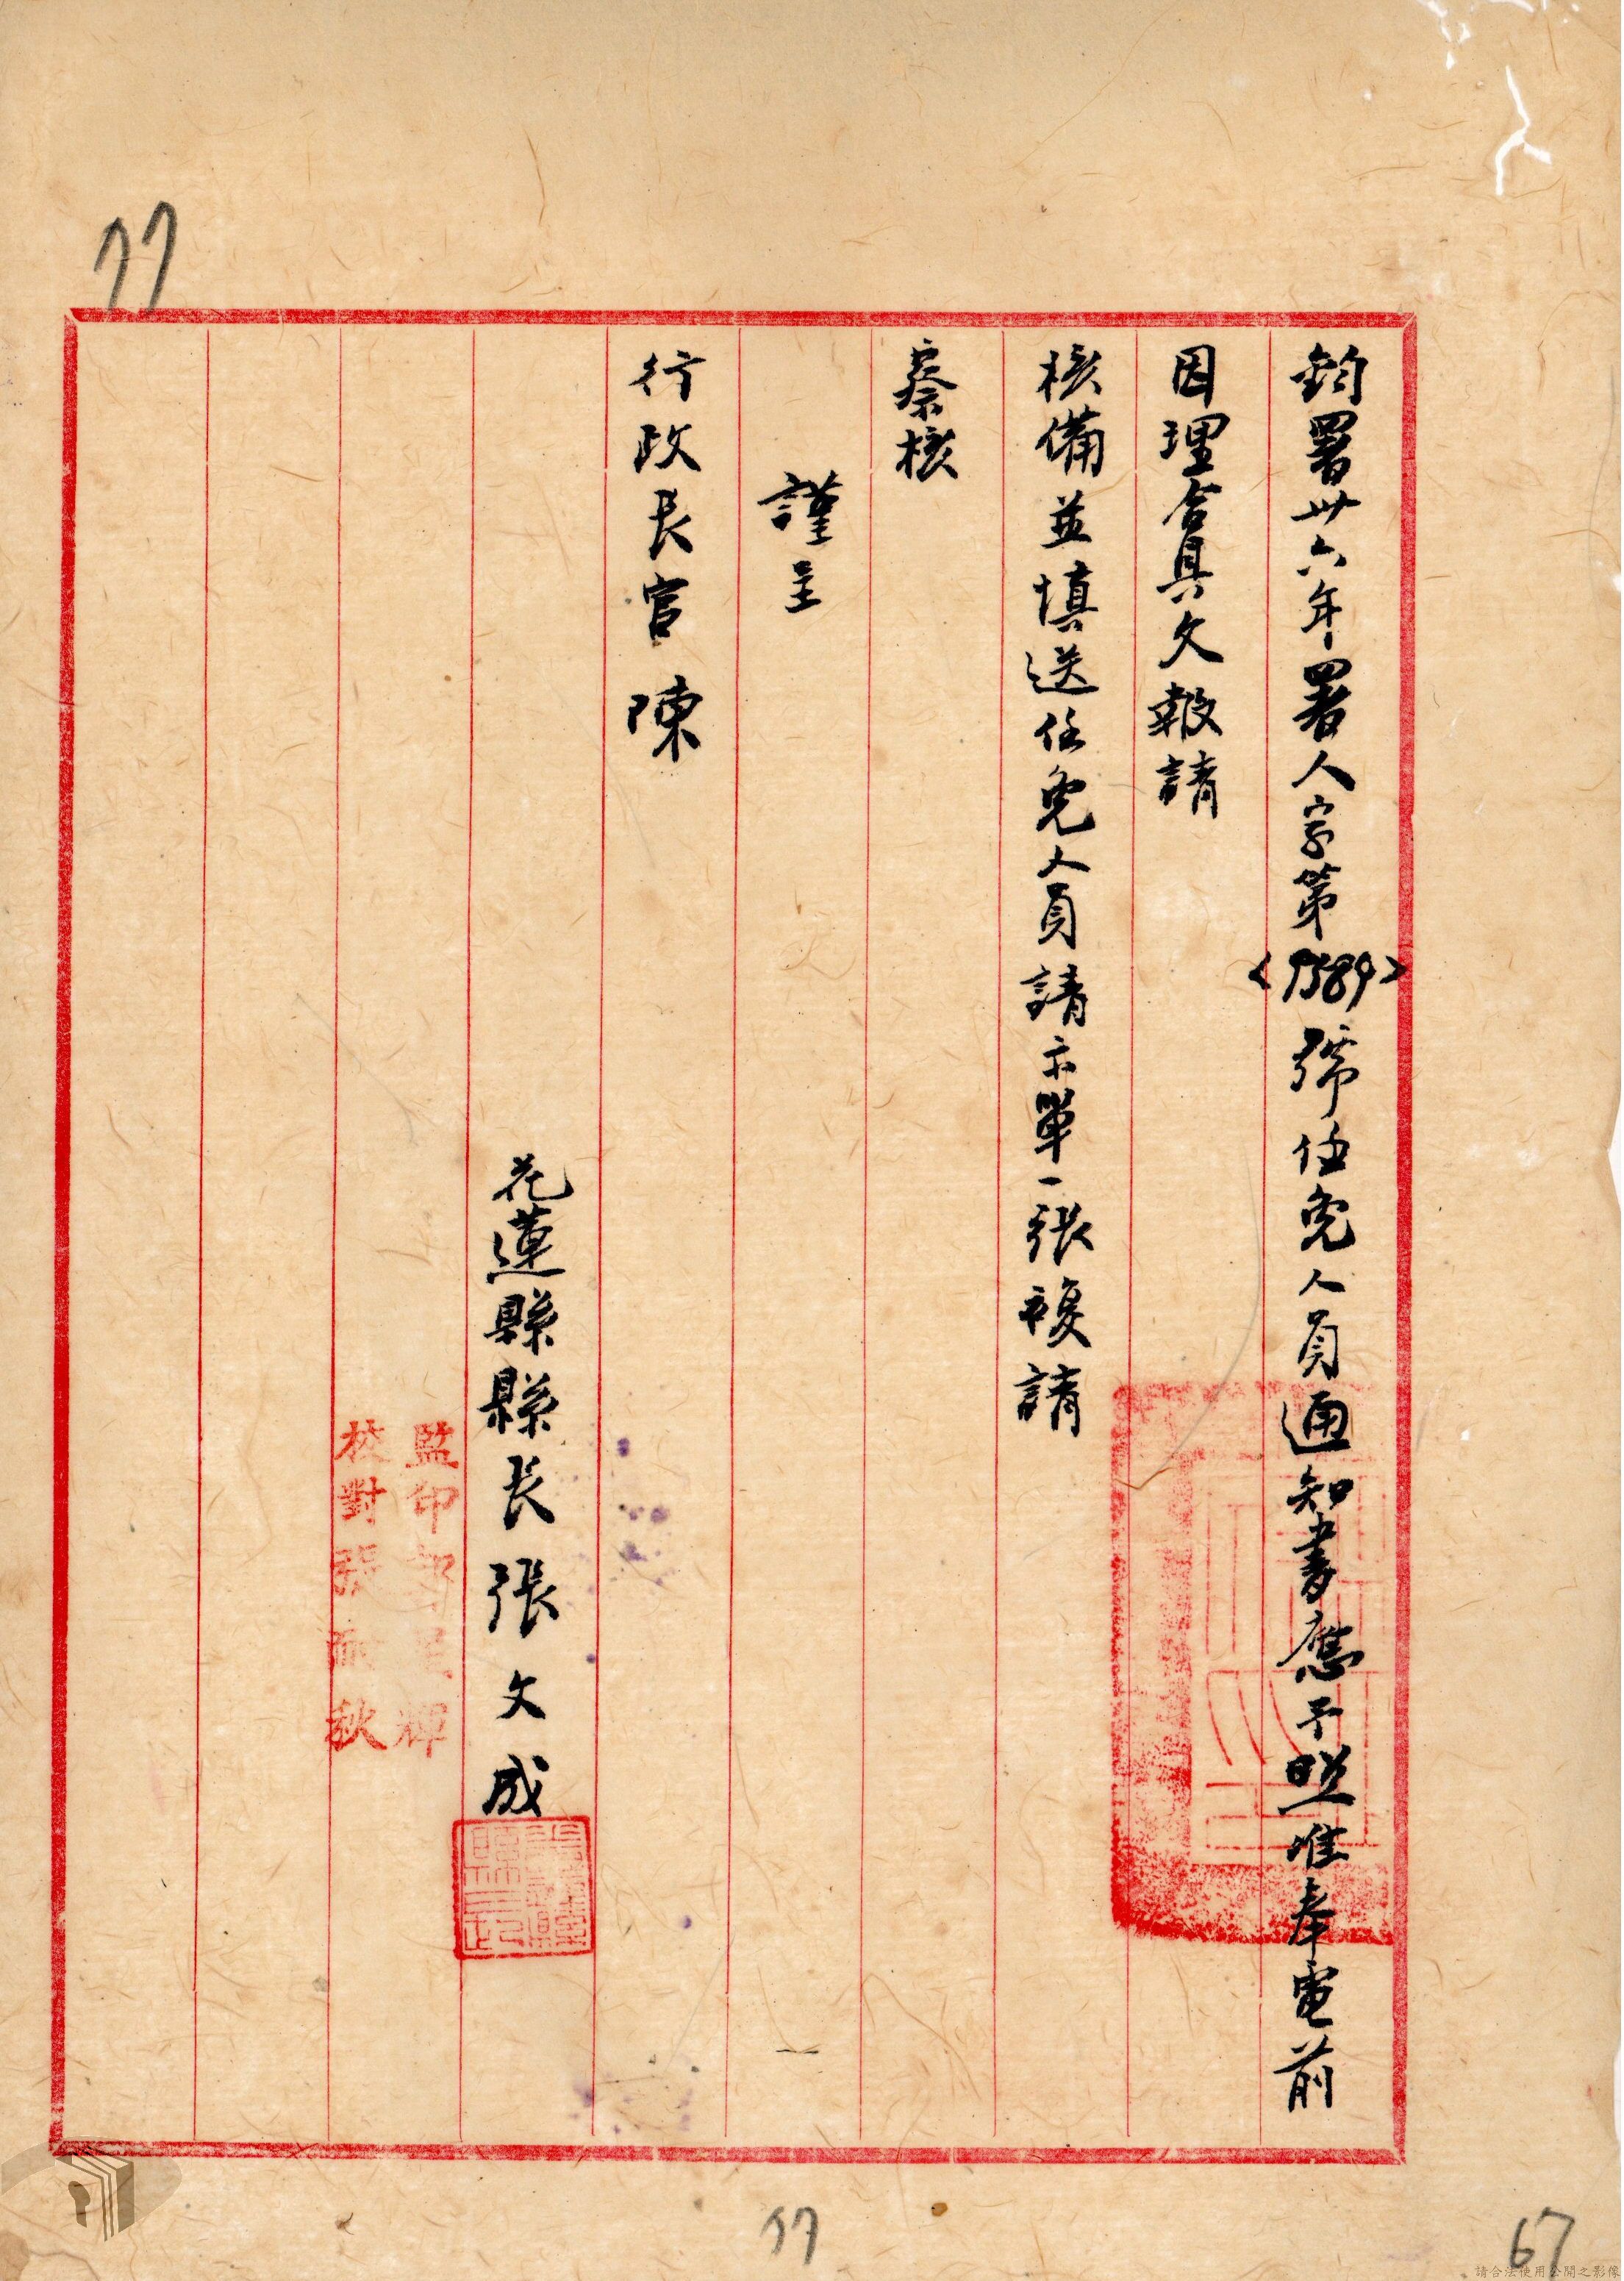 鈞署卅六年署人字第<9589>號任免人員通知書應予照准奉電前
因理合具文報請
核備並填送任免人員請示單一張複請
察核
謹呈
行政長官陳
花蓮縣縣長張文成
監印 輝
校對張 秋
77
77
67
請合法使用公開之影像